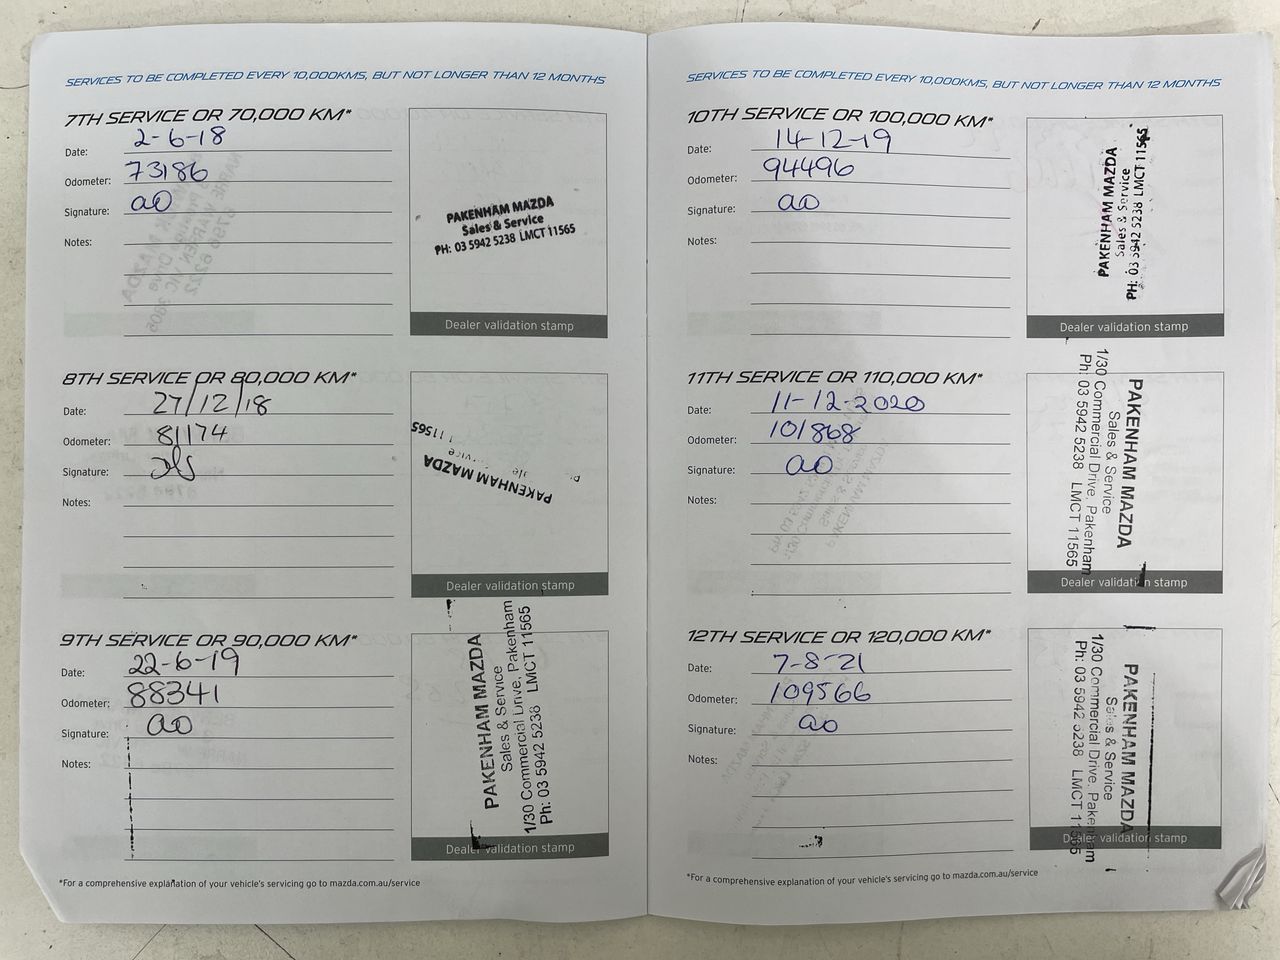 SERVICES TO BE COMPLETED EVERY 10,000KMS, BUT NOT LONGER THAN 12 MONTHS
7TH SERVICE OR 70,000 KM*
Date: 2-6-18
Odometer: 73186
Signature: ao
Notes:
PAKENHAM MAZDA
Sales & Service
PH: 03 5942 5238 LMCT 11565
Dealer validation stamp
8TH SERVICE OR 80,000 KM*
Date: 27/12/18
Odometer: 81174
Signature:
Notes:
PAKENHAM MAZDA
11565
Dealer validation stamp
9TH SERVICE OR 90,000 KM*
Date: 22-6-19
Odometer: 88341
Signature: ao
Notes:
PAKENHAM MAZDA
Sales & Service
1/30 Commercial Drive, Pakenham
Ph: 03 5942 5238 LMCT 11565
Dealer validation stamp
*For a comprehensive explanation of your vehicle's servicing go to mazda.com.au/service
SERVICES TO BE COMPLETED EVERY 10,000KMS, BUT NOT LONGER THAN 12 MONTHS
10TH SERVICE OR 100,000 KM*
Date: 14-12-19
Odometer: 94496
Signature: ao
Notes:
PAKENHAM MAZDA
Sales & Service
PH: 03 5942 5238 LMCT 11565
Dealer validation stamp
11TH SERVICE OR 110,000 KM*
Date: 11-12-2020
Odometer: 101868
Signature: ao
Notes:
PAKENHAM MAZDA
Sales & Service
1/30 Commercial Drive, Pakenham
Ph: 03 5942 5238 LMCT 11565
Dealer validation stamp
12TH SERVICE OR 120,000 KM*
Date: 7-8-21
Odometer: 109566
Signature: ao
Notes:
PAKENHAM MAZDA
Sales & Service
1/30 Commercial Drive, Pakenham
Ph: 03 5942 5238 LMCT 11565
Dealer validation stamp
*For a comprehensive explanation of your vehicle's servicing go to mazda.com.au/service